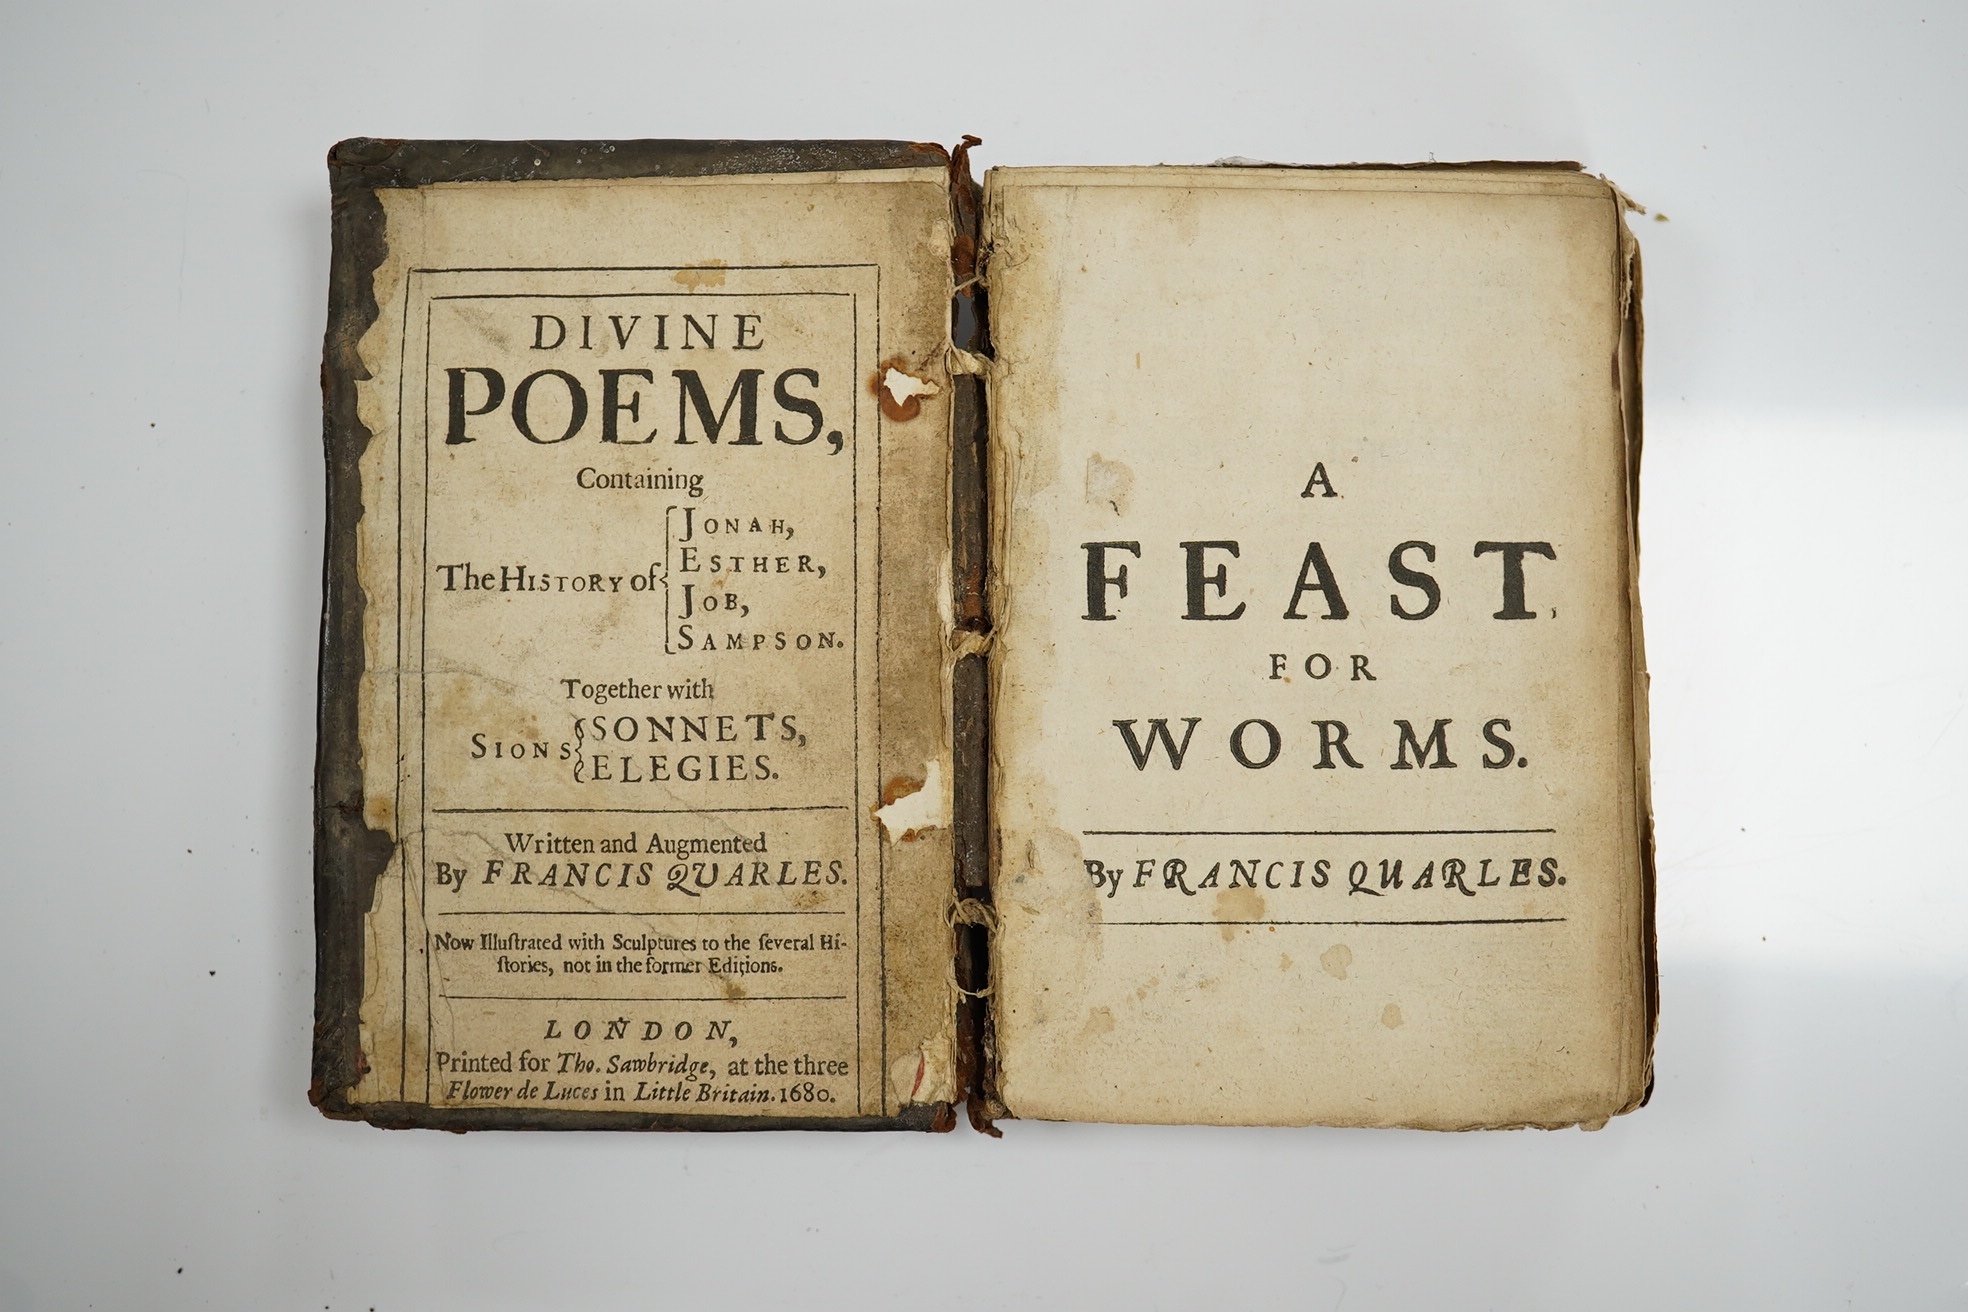 DIVINE
POEMS,
Containing
The HISTORY of
JONAH,
ESTHER,
JOB,
SAMPSON.
Together with
SIONS
SONNETS,
ELEGIES.
Written and Augmented
By FRANCIS QUARLES.
Now Illuſtrated with Sculptures to the ſeveral Hi-
ſtories, not in the former Editions.
LONDON,
Printed for Tho. Sawbridge, at the three
Flower de Luces in Little Britain. 1680.
A
FEAST
FOR
WORMS.
By FRANCIS QUARLES.